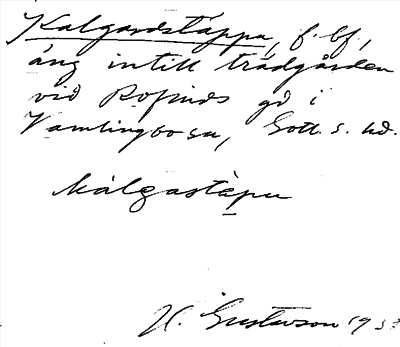 Kalgardstäppu, f. bf.,
äng intill trädgården
vid Rofinds gd i
Vamlingbo sn, Gotl. s. hd.
kálgastàpu
H. Gustavson 19